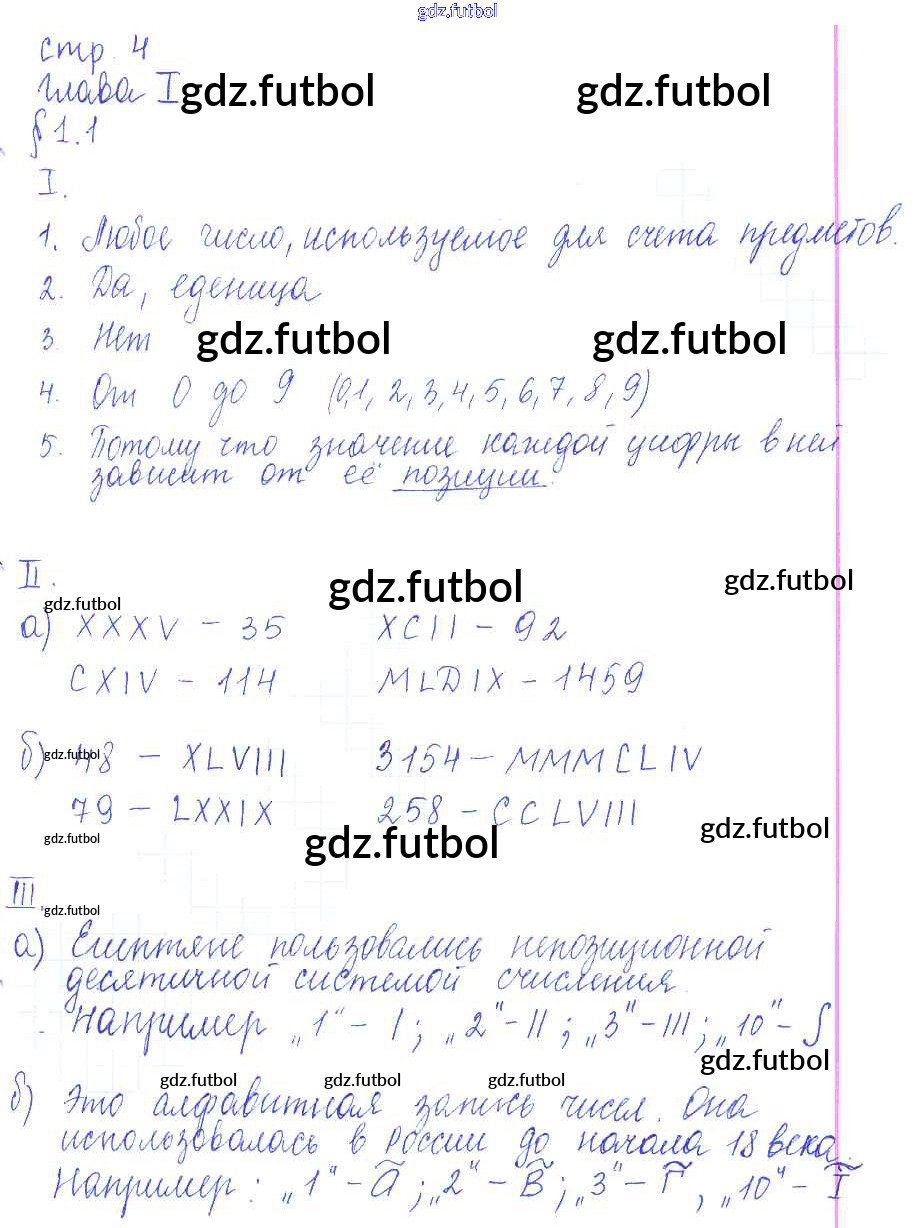 gdz.futbol
стр. 4
глава I gdz.futbol gdz.futbol
§ 1.1
I.
1. Любое число, используемое для счета предметов.
2. Да, еденица
3. Нет gdz.futbol gdz.futbol
4. От 0 до 9 (0,1, 2, 3, 4, 5, 6, 7, 8, 9)
5. Потому что значение каждой цифры в ней
зависит от её позиции.
II. gdz.futbol gdz.futbol
gdz.futbol
а) XXXV - 35 XCII - 92
CXIV - 114 MLDIX - 1459
б) 48 - XLVIII 3154 - MMMCLIV
gdz.futbol
79 - LXXIX 258 - CCLVIII
gdz.futbol gdz.futbol gdz.futbol
III.
gdz.futbol
а) Египтяне пользовались непозиционной
десятичной системой счисления.
Например „1“ - I ; „2“ - II ; „3“ - III ; „10“ - ∫
gdz.futbol
gdz.futbol gdz.futbol gdz.futbol
б) Это алфавитная запись чисел. Она
использовалась в России до начала 18 века.
Например: „1“ - А̃ ; „2“ - В̃ ; „3“ - Г̃ , „10“ - Ĩ